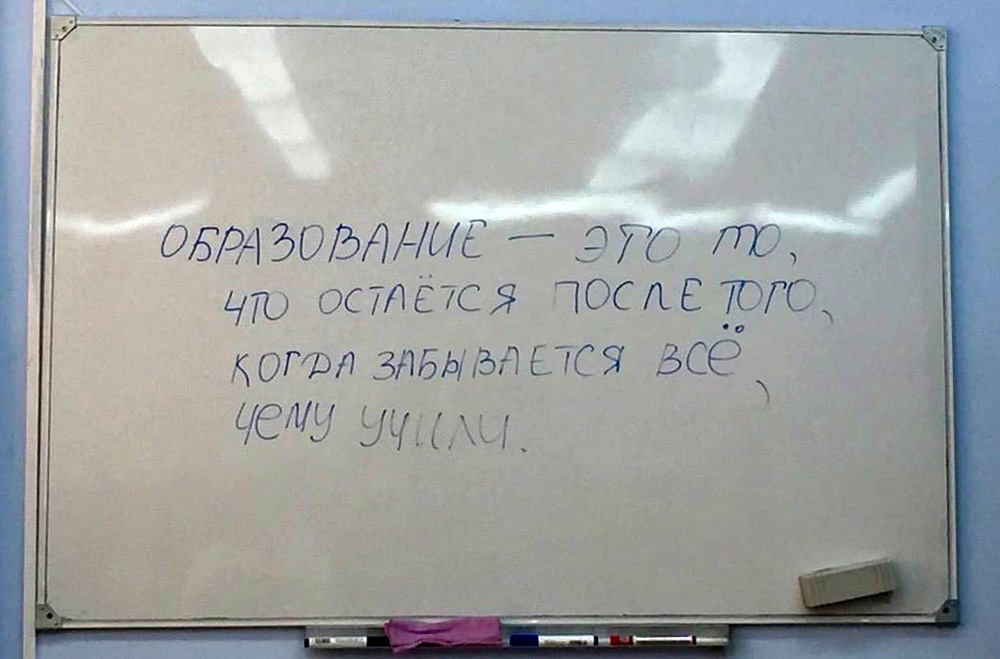 ОБРАЗОВАНИЕ — ЭТО ТО,
ЧТО ОСТАЁТСЯ ПОСЛЕ ТОГО,
КОГДА ЗАБЫВАЕТСЯ ВСЁ,
ЧЕМУ УЧИЛИ.